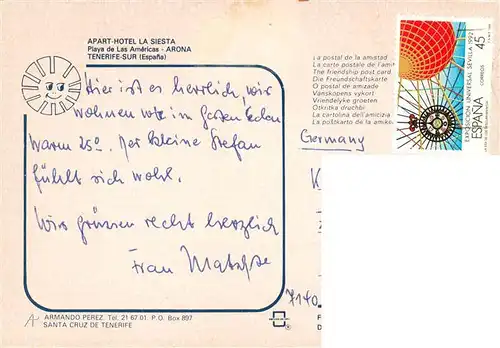 APART-HOTEL LA SIESTA
Playa de Las Américas - ARONA
TENERIFE-SUR (España)
Hier ist es herrlich, wir
wohnen wie im Garten Eden
waren 25°. Der kleine Stefan
fühlt sich wohl.
Wir grüssen recht herzlich
Frau
ARMANDO PEREZ. Tel. 21 67 01. P.O. Box 897
SANTA CRUZ DE TENERIFE
La postal de la amistad
La carte postale de l'ami
The friendship post card
Die Freundschaftskarte
O postal de amizade
Vänskapens vykort
Vriendelijke groeten
Otkritka druchbi
La cartolina dell'amicizia
La poŝtkarto de la amike
Germany
7140
EXPOSICION UNIVERSAL SEVILLA 1992
ESPAÑA
CORREOS
45